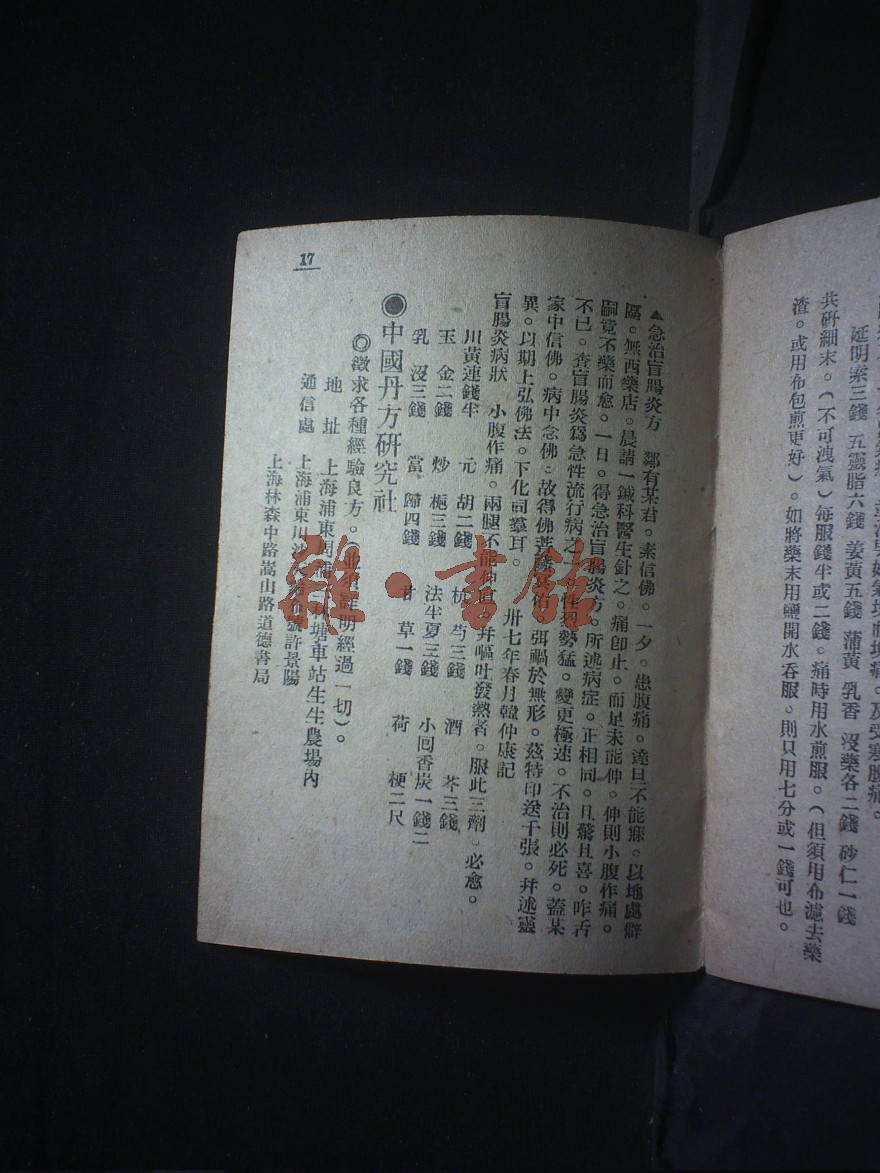 延胡索三錢 五靈脂六錢 姜黃五錢 蒲黃 乳香 沒藥各二錢 砂仁一錢
共研細末。(不可洩氣)每服錢半或二錢。痛時用水煎服。(但須用布濾去藥
渣。或用布包煎更好)。如將藥末用鹽開水吞服。則只用七分或一錢可也。
▲急治盲腸炎方 鄰有某君。素信佛。一夕。患腹痛。達旦不能寐。以地處僻
區。無西藥店。晨請一鍼科醫生針之。痛卽止。而足未能伸。伸則小腹作痛。
嗣竟不藥而愈。一日。得急治盲腸炎方。所述病症。正相同。且驚且喜。咋舌
不已。查盲腸炎爲急性流行病之一。性烈勢猛。變更極速。不治則必死。蓋某
家中信佛。病中念佛。故得佛菩薩冥佑。弭禍於無形。茲特印送千張。幷述靈
異。以期上弘佛法。下化同羣耳。 卅七年春月韓仲康記
盲腸炎病狀 小腹作痛。兩腿不能伸直。幷嘔吐發熱者。服此三劑。必愈。
川黃連錢半 元胡二錢 杭芍三錢 酒芩三錢
玉金二錢 炒梔三錢 法半夏三錢 小茴香炭一錢二
乳沒三錢 當歸四錢 甘草一錢 荷梗二尺
●中國丹方研究社
◎徵求各種經驗良方。(並須註明經過一切)。
地址 上海浦東周浦 塘車站生生農場內
通信處 上海浦東川沙 號許景陽
上海林森中路嵩山路道德書局
17
雜·書館